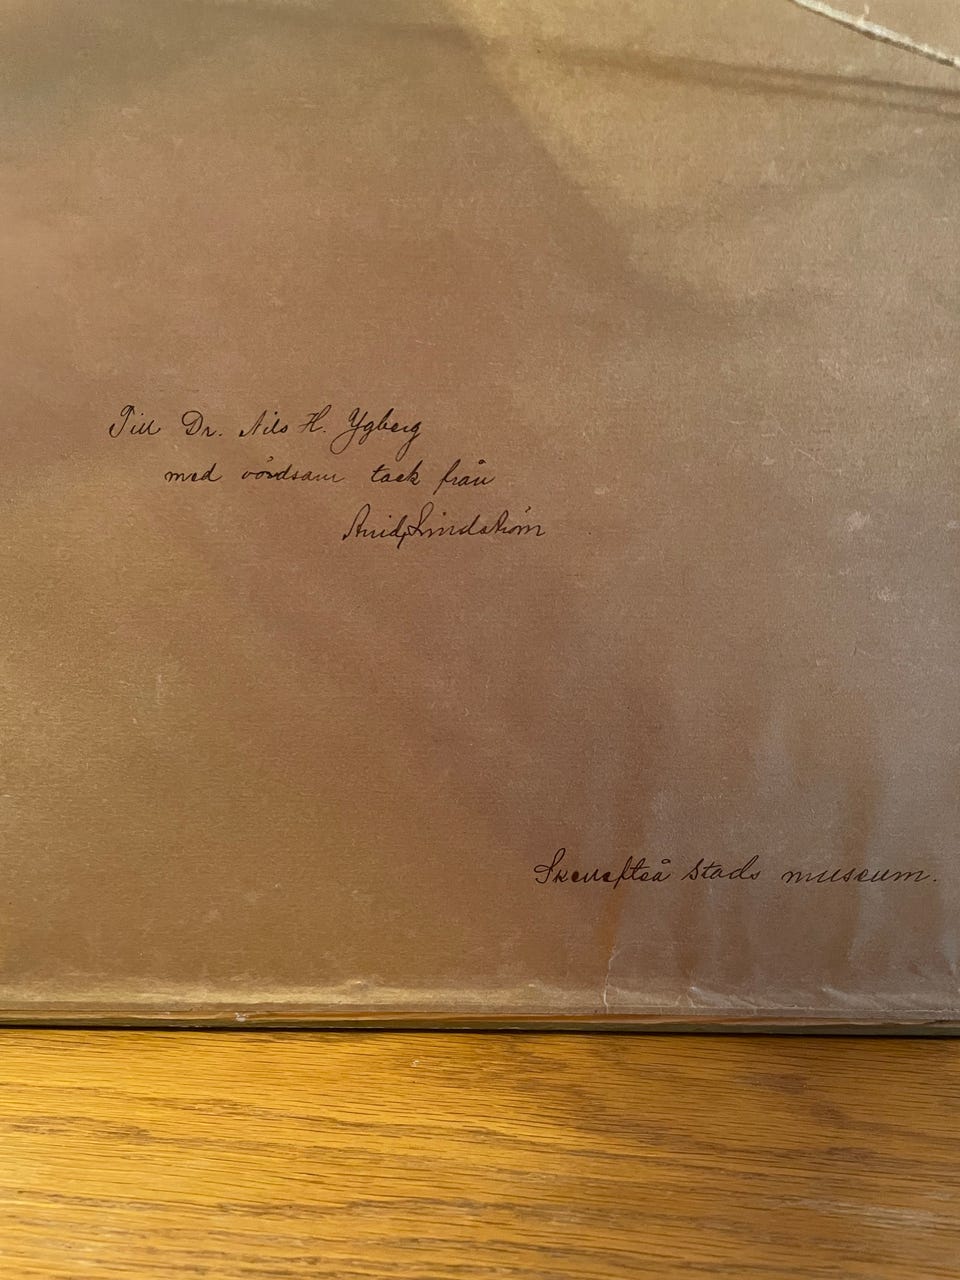 Till Dr. Nils H. Ygberg
med vördsam tack från
Lindström
Skellefteå Stads museum.